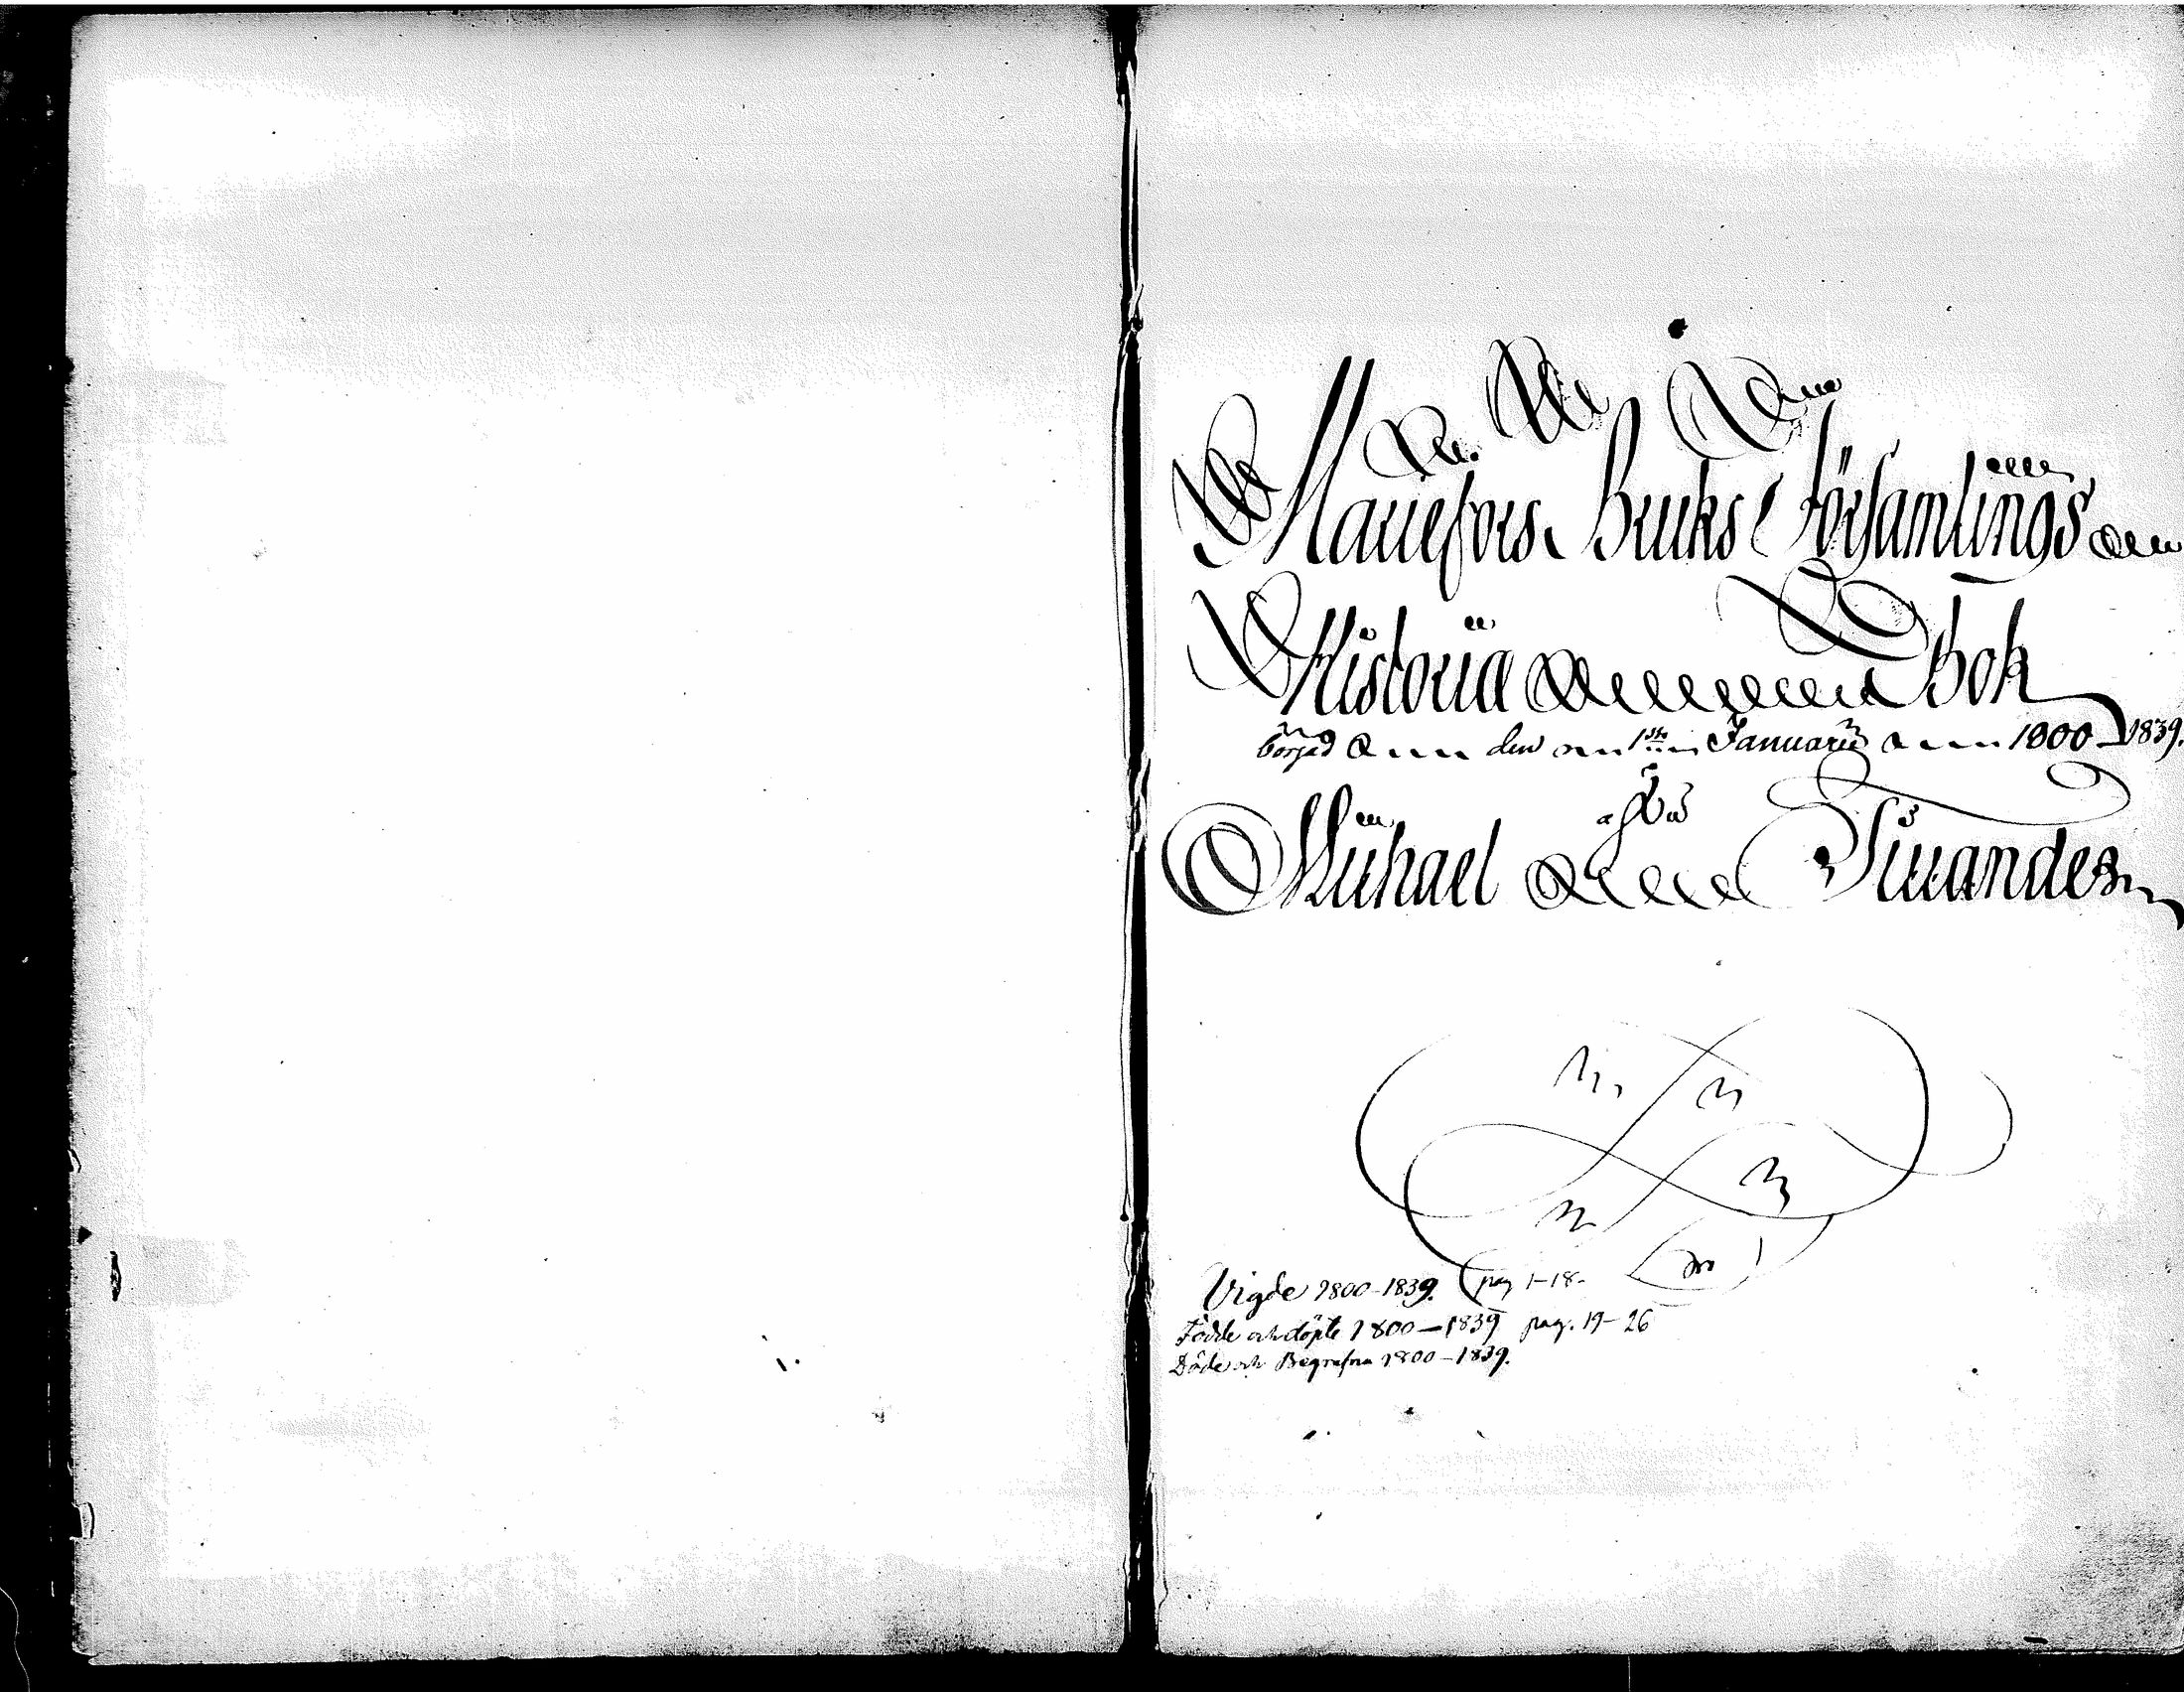 Mariefors Bruks Församlings
Historie Bok
börjad den 1sta Januarii 1800 - 1839.
af
Michael
Vigde 1800-1839. pag 1-18.
Födde och döpte 1800-1839 pag. 19-26
Döde och Begrafna 1800-1839.